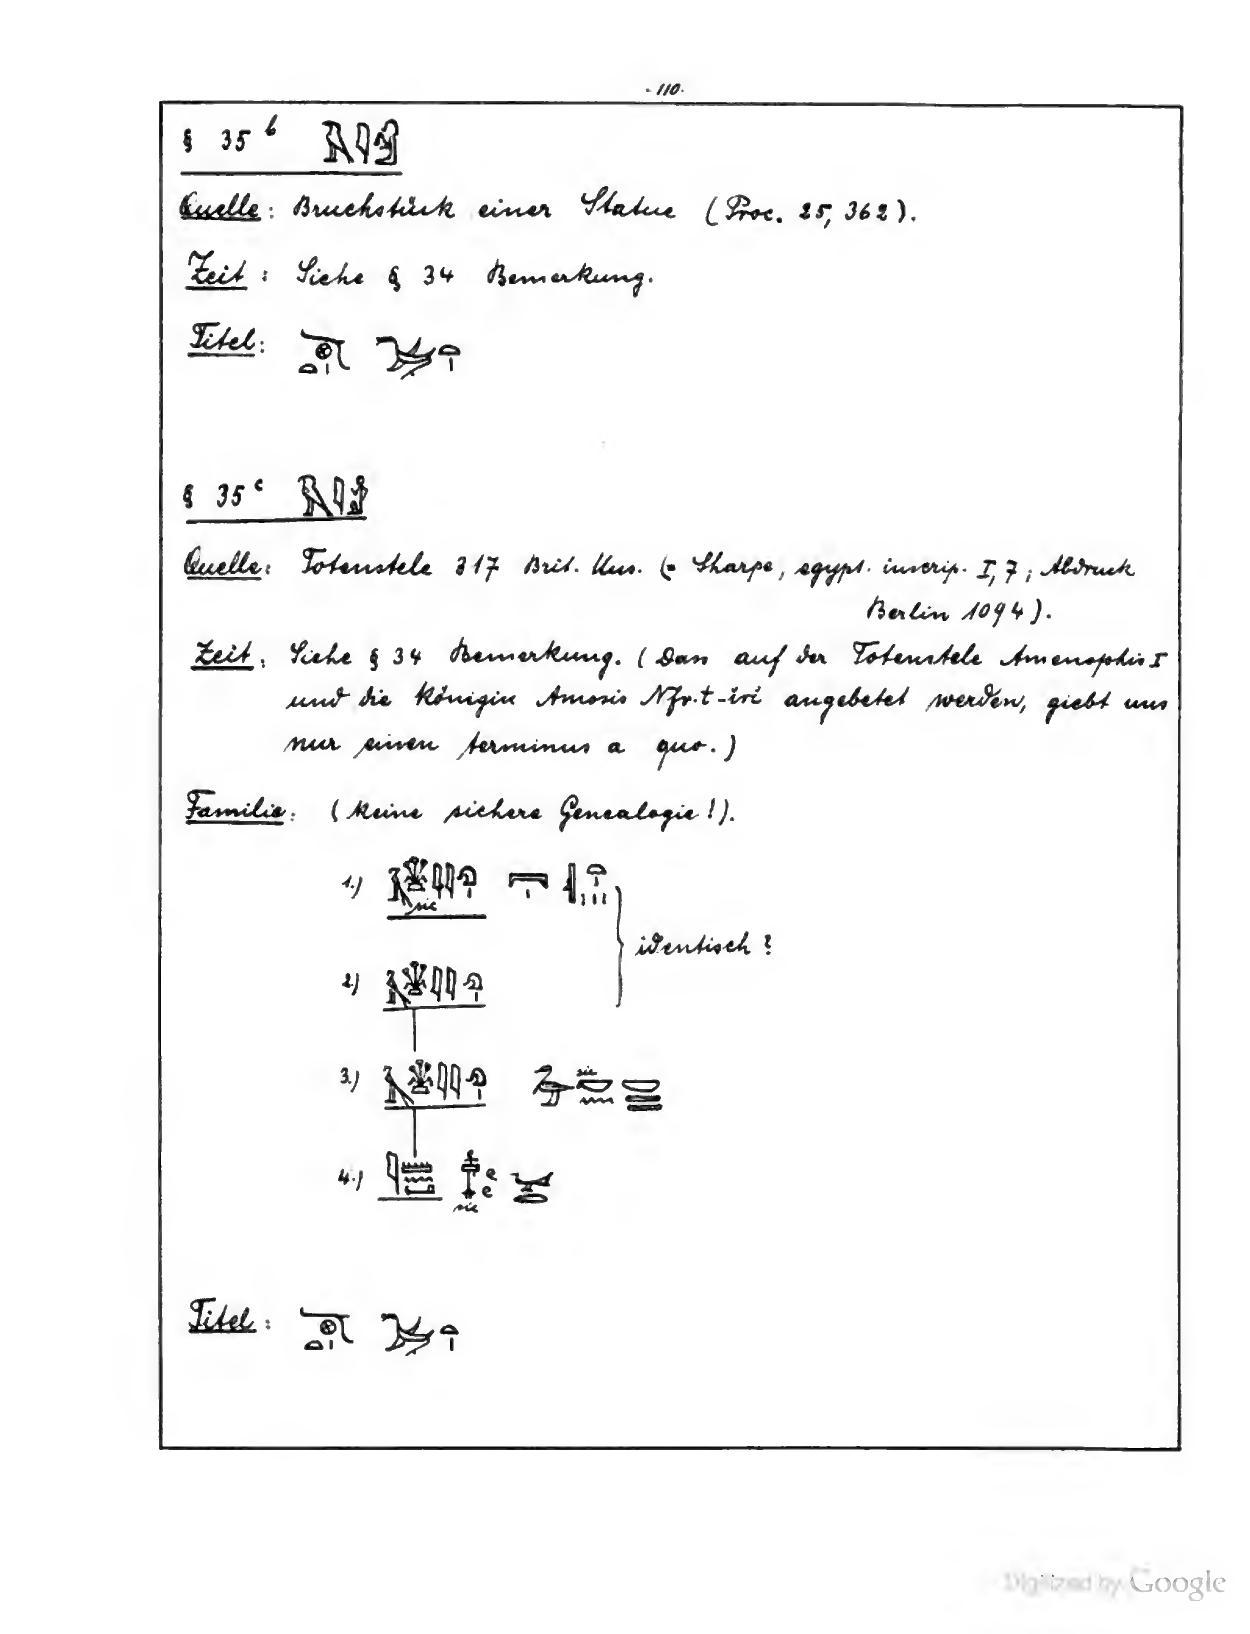 - 110 -
§ 35 b
Quelle: Bruchstück einer Statue (Proc. 25, 362).
Zeit: Siehe § 34 Bemerkung.
Titel:
§ 35 c
Quelle: Totenstele 317 Brit. Mus. (= Sharpe, egypt. inscrip. I, 7; Abdruck
Berlin 1094).
Zeit: Siehe § 34 Bemerkung. (Dass auf der Totenstele Amenophis I
und die Königin Amosis Nfr.t-iri angebetet werden, giebt uns
nur einen terminus a quo.)
Familie: (Keine sichere Genealogie!).
1.)
sic
identisch?
2.)
3.) sic
4.)
sic
Titel:
Digitized by Google